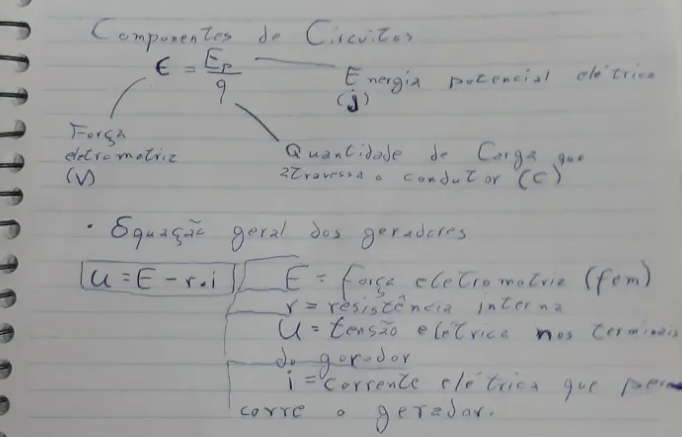 Componentes de Circuitos
ϵ = Ep/q
Energia potencial elétrica
(j)
Força
eletromotriz
(V)
Quantidade de Carga que
atravessa o condutor (C)
• Equação geral dos geradores
U = E - r.i
E = força eletromotriz (fem)
r = resistência interna
U = tensão elétrica nos terminais
do gerador
i = corrente elétrica que per
corre o gerador.